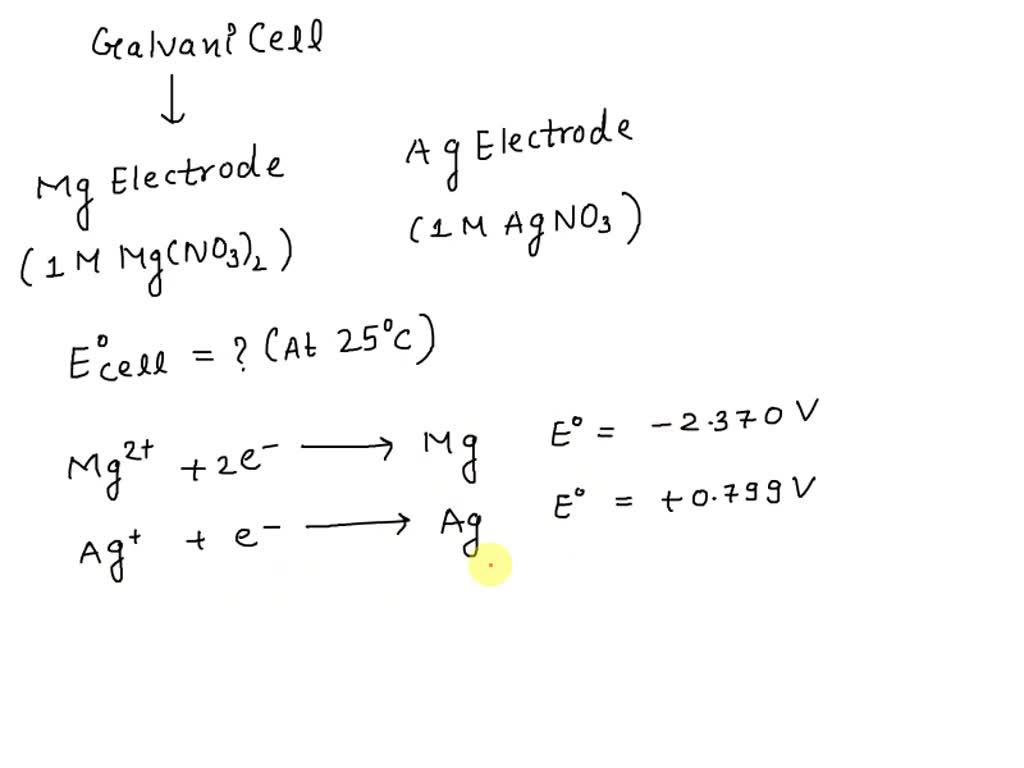 Galvani Cell
↓
Mg Electrode
(1M Mg(NO₃)₂)
Ag Electrode
(1M AgNO₃)
E°cell = ? (At 25°C)
Mg²⁺ + 2e⁻ ⟶ Mg E° = -2.370 V
Ag⁺ + e⁻ ⟶ Ag E° = +0.799 V